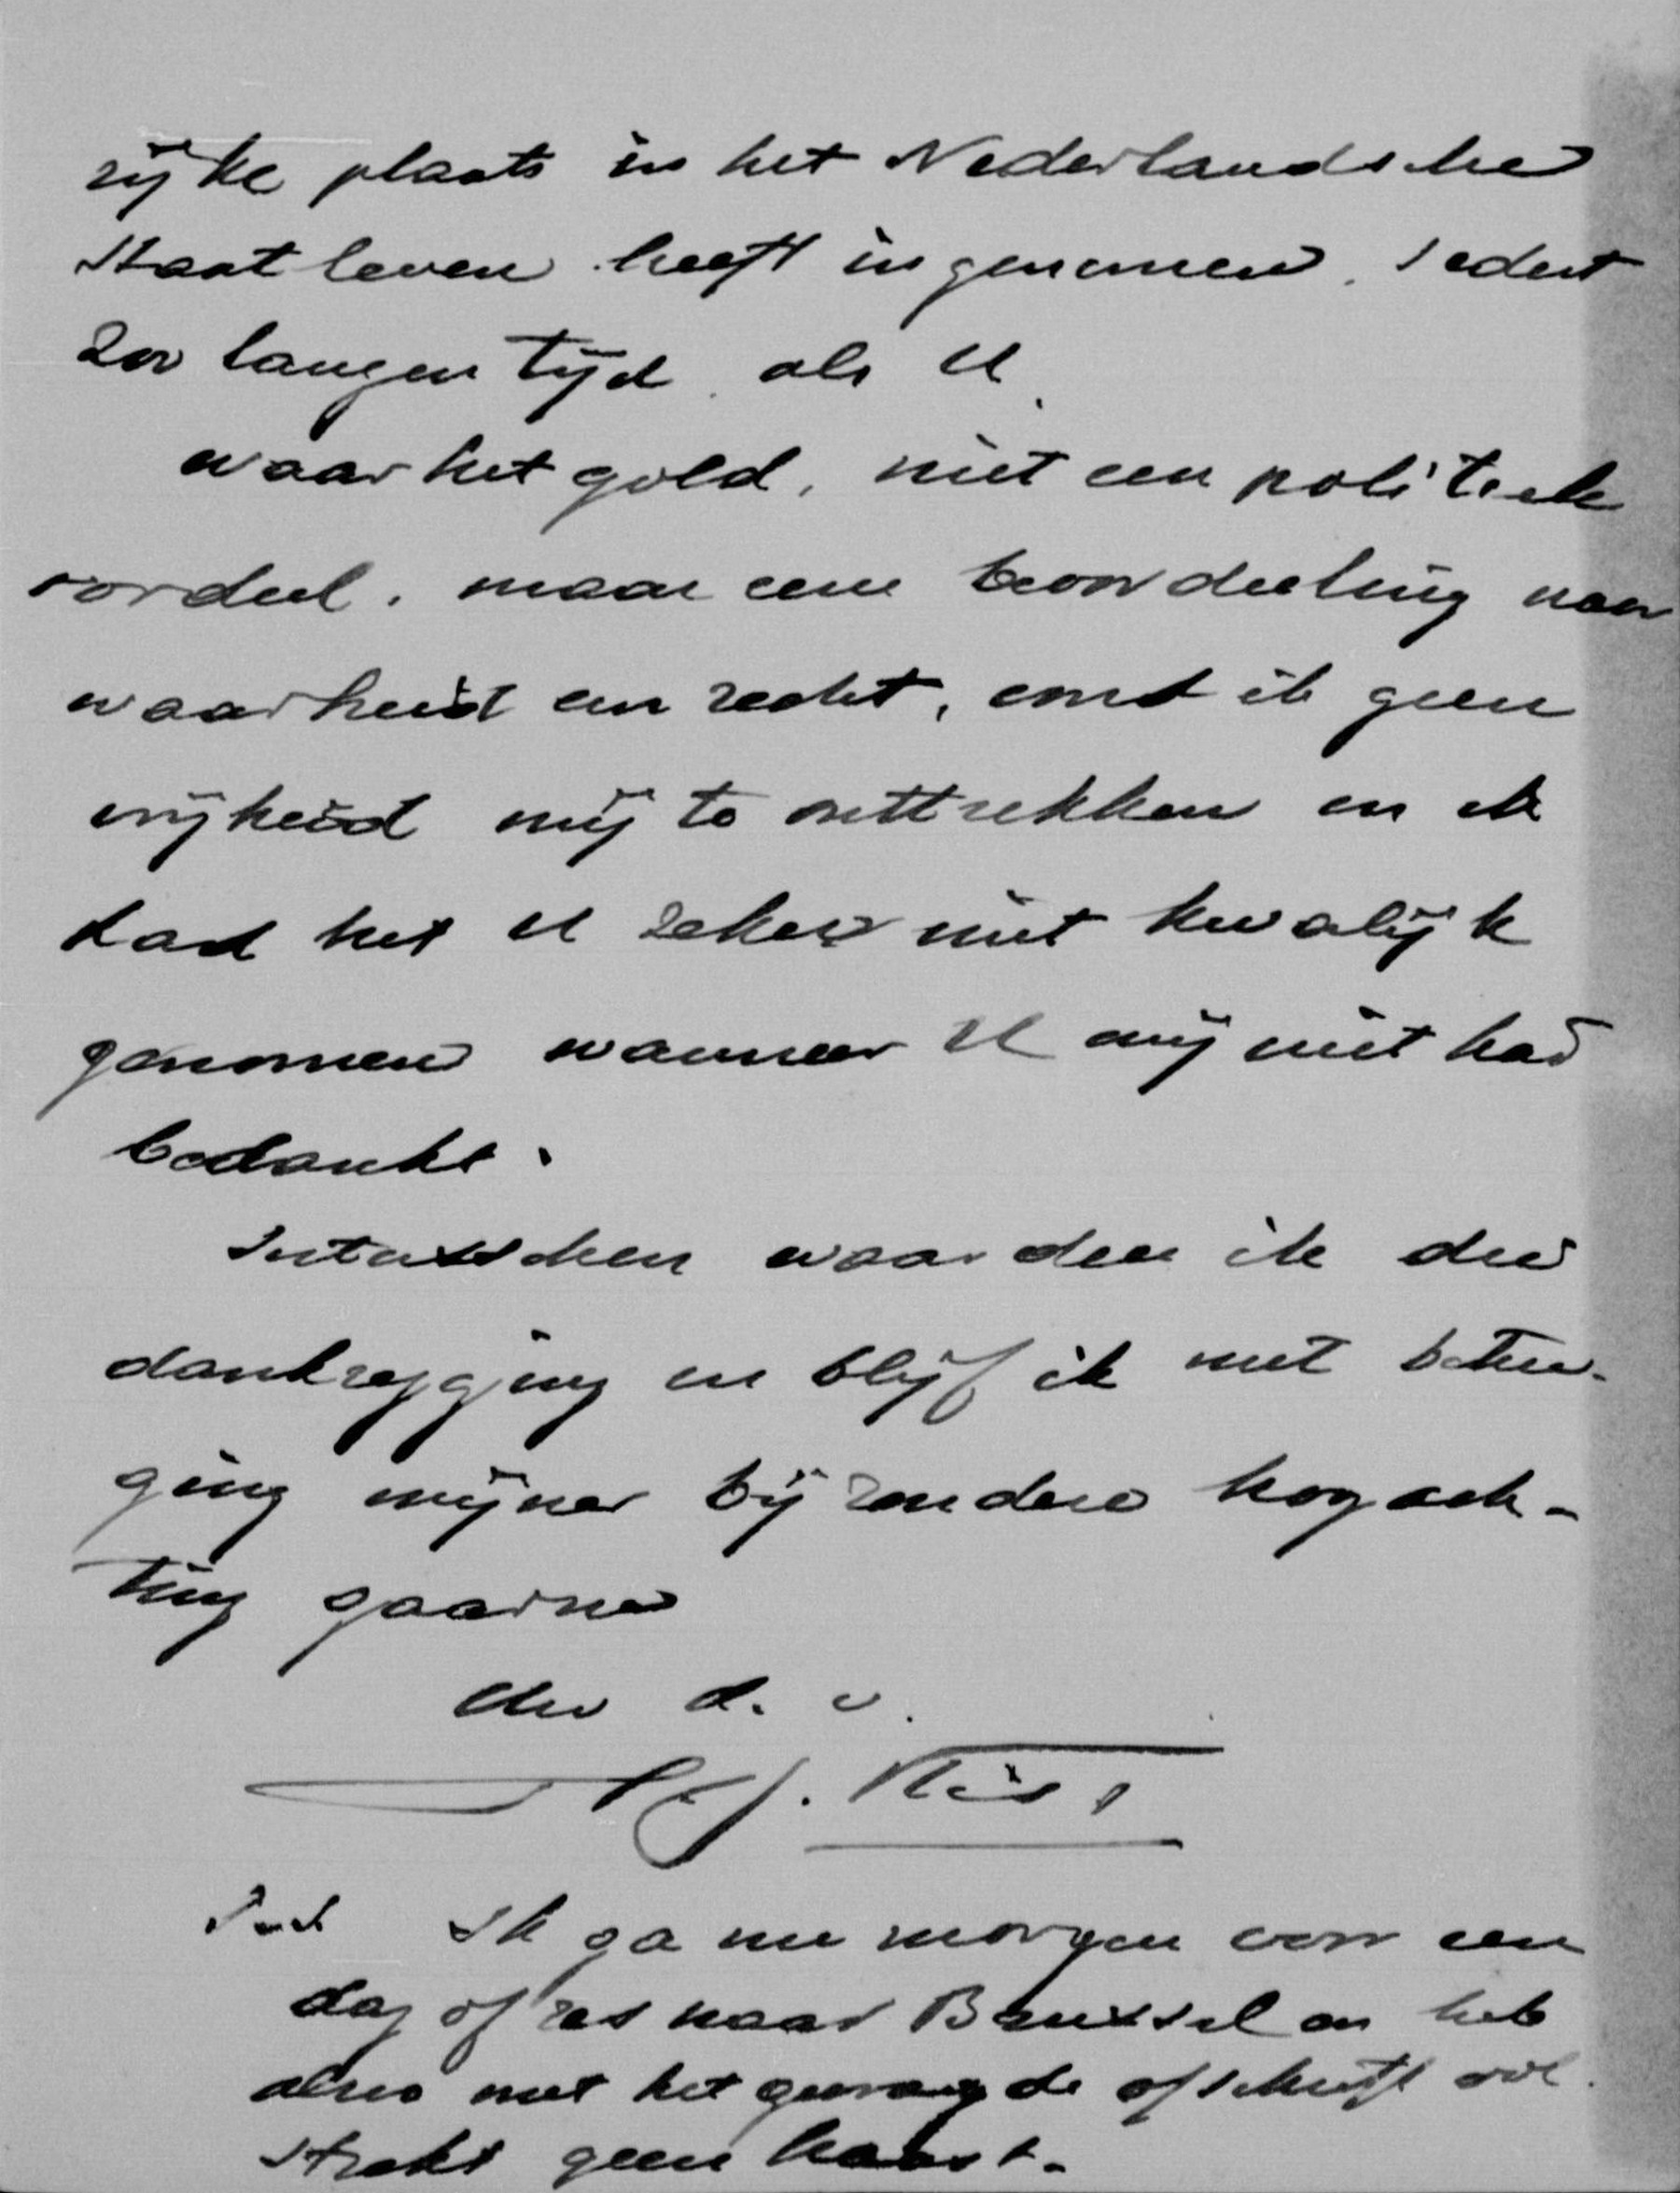 rijke plaats in het Nederlandsche
Staatleven heeft ingenomen, sedert
zoo langen tijd als U.
Waar het gold, niet een politiek
oordeel, maar eene beoordeeling van
waarheid en recht, vond ik geen
vrijheid mij te onttrekken en ik
had het U zeker niet kwalijk
genomen wanneer U mij niet had
bedankt.
Intusschen waardeer ik die
dankzegging en blijf ik met betui-
ging mijner bijzondere hoogach-
ting gaarne
Uw d. v.
Ik ga nu morgen voor een
dag of zes naar Brussel en heb
alzoo met het gevraagde afschrift vol-
strekt geen haast.